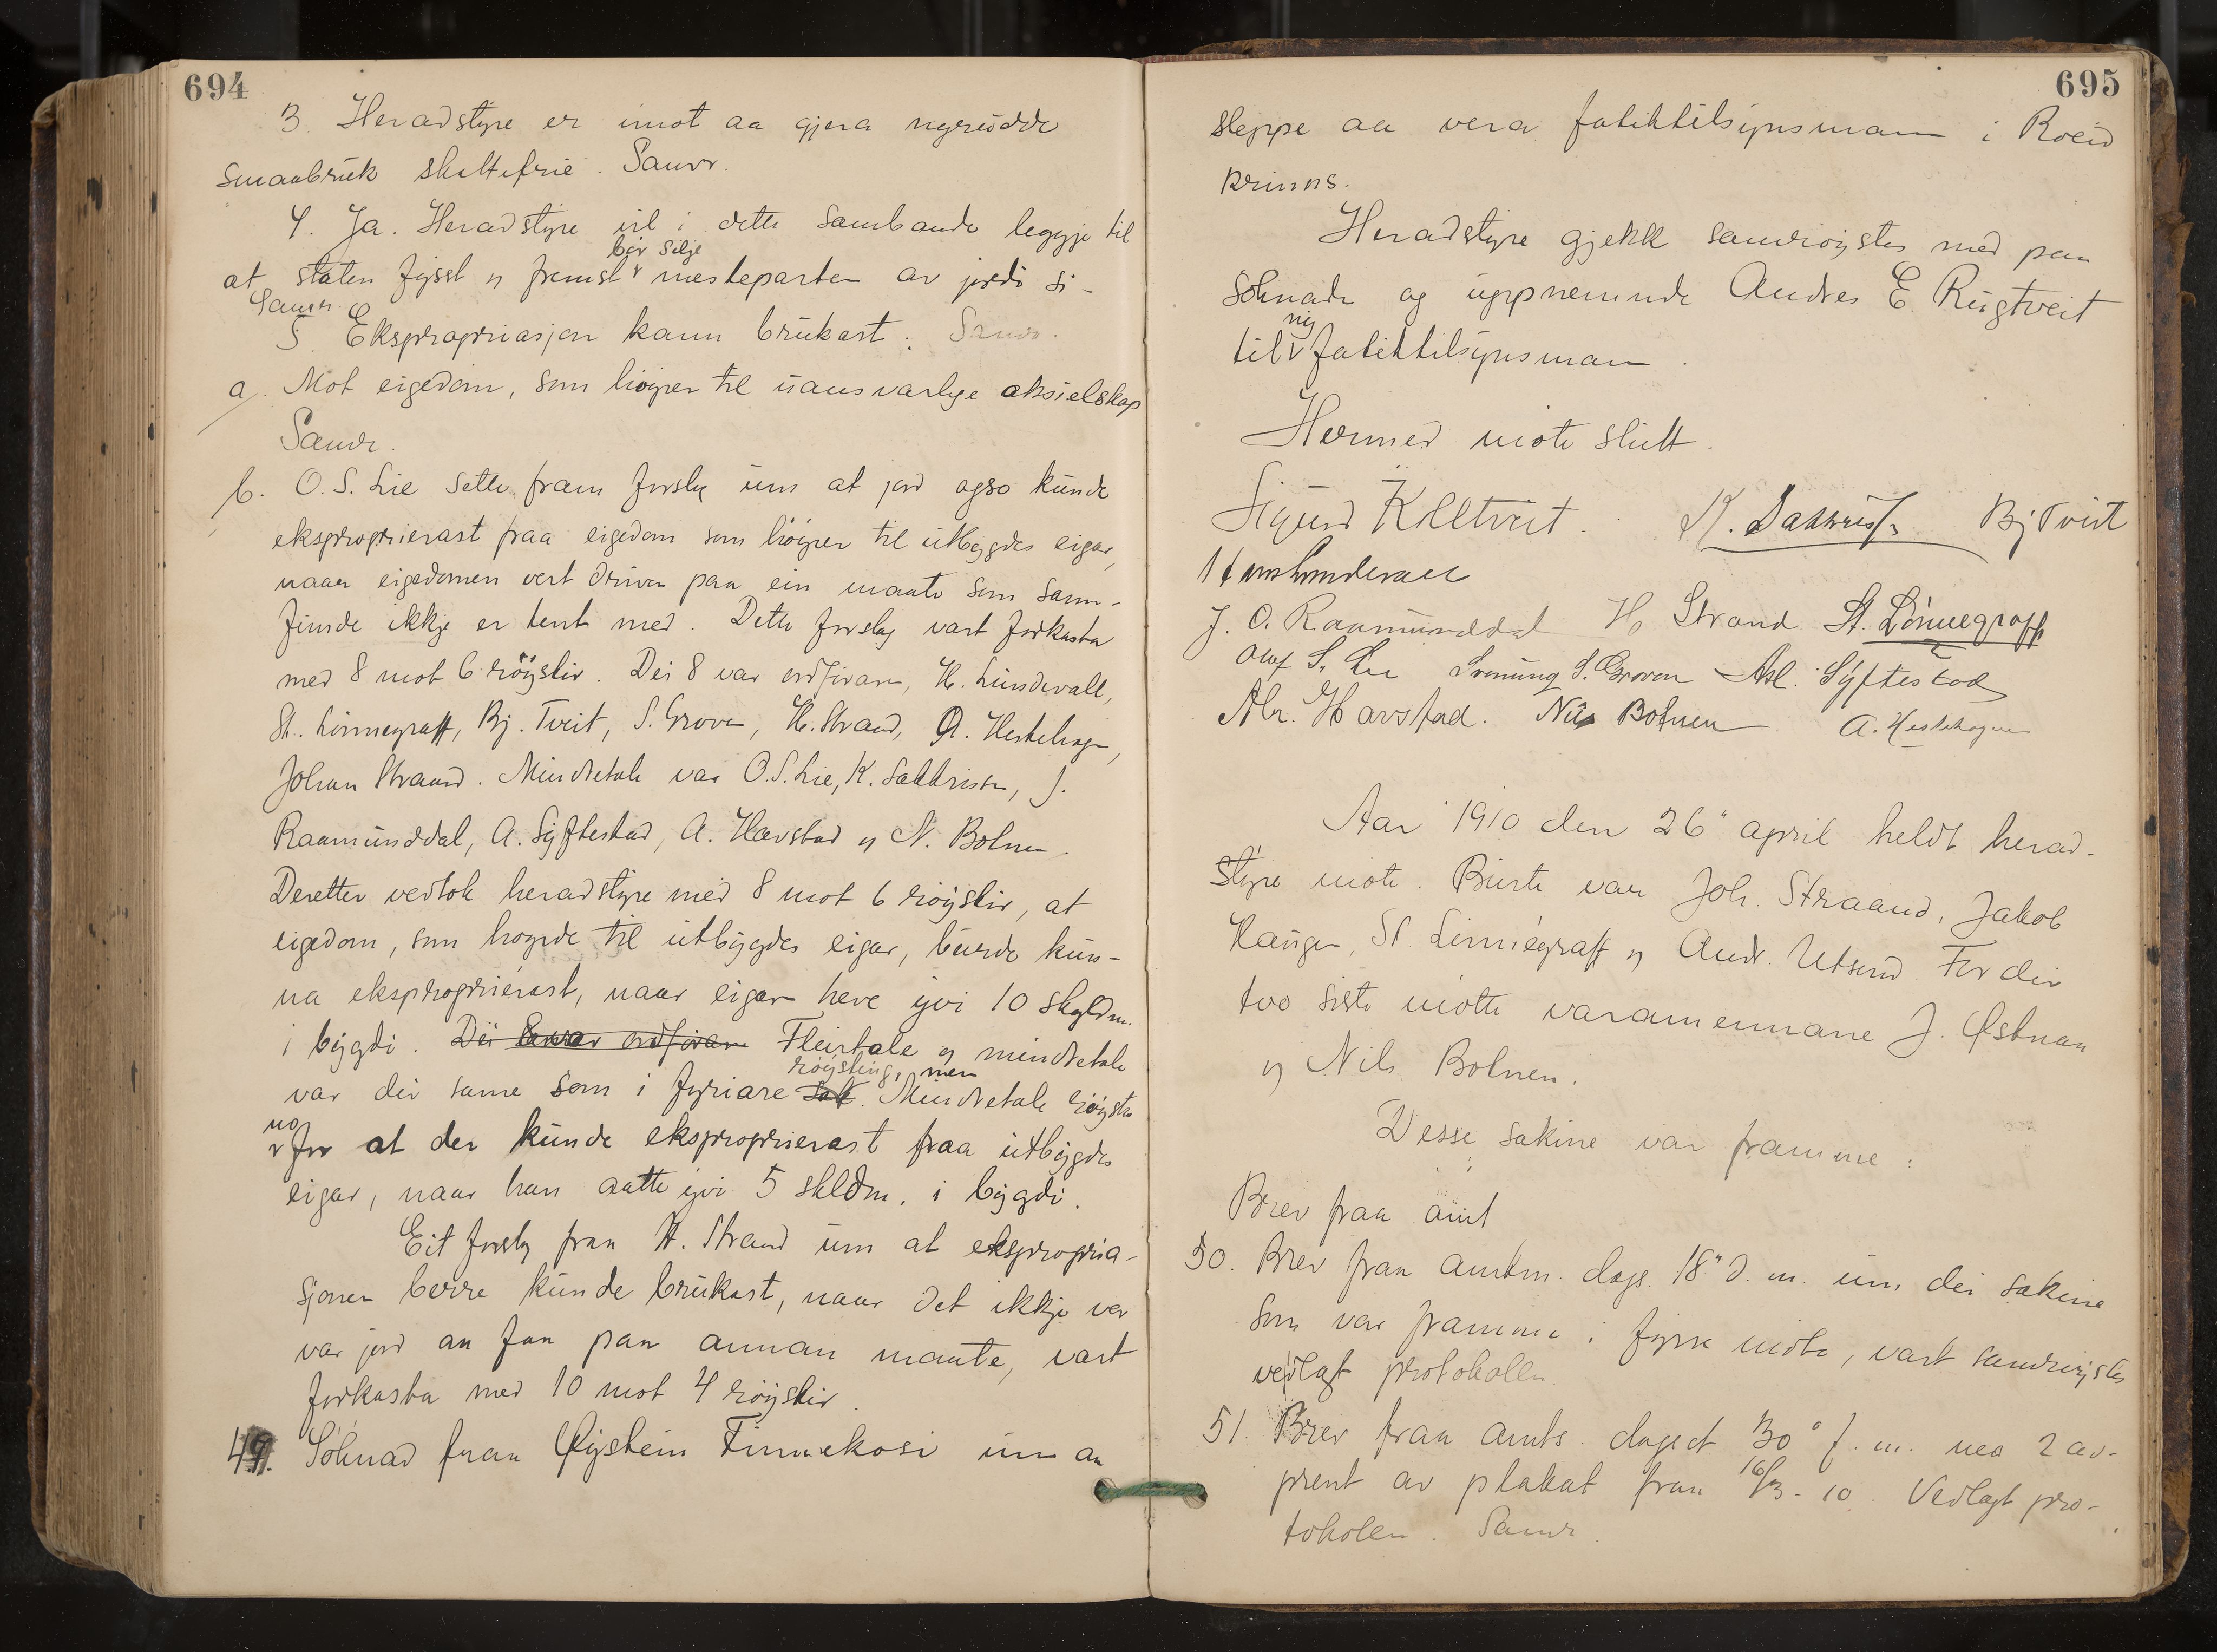 694
3. Heradstyre er imot aa gjera nyrudde
smaabruk skattefrie. Samr.
4. Ja. Heradstyre vil i dette sambande leggje til
bør selje
at staten fysst og fremst mesteparten av jordi si-
Samr.
5. Ekspropriasjon kann brukast. Samr.
a. Mot eigedom, som høyrer til uansvarlege aksielskap
Samr.
b. O. S. Lie sette fram forslag um at jord ogso kunde
eksproprierast fraa eigedom som høyrer til utbygdes eigar,
naar eigedomen vert driven paa ein maate som sam-
funde ikkje er tent med. Dette forslag vart forkasta
med 8 mot 6 røyster. Dei 8 var ordføraren, H. Lundevall,
St. Linnegraff, Bj. Tveit, S. Groven, H. Strand, A. Hestehagen,
Johan Straand. Mindretale var O. S. Lie, K. Sakkrisson, J.
Raamunddal, A. Syftestad, A. Havstad og N. Bolnen.
Deretter vedtok heradstyre med 8 mot 6 røyster, at
eigedom, som høyrde til utbygdes eigar, burde kun-
na eksproprierast, naar eigaren heve yvi 10 skyldm.
i bygdi. Dei ordføraren Fleirtale og mindretale
røysting, men
var dei same som i fyriare sak. Mindretale røysta
no
for at der kunde eksproprierast fraa utbygdes
eigar, naar han aatte yvi 5 skldm. i bygdi.
Eit forslag fraa H. Strand um at ekspropria-
sjonen berre kunde brukast, naar det ikkje var
var jord aa faa paa annan maate, vart
forkasta med 10 mot 4 røyster.
49. Søknad fraa Øystein Finnekosi um aa
695
sleppe aa vera fatiktilsynsmann i Roeid
krinns.
Heradstyre gjekk samrøystes med paa
søknaden og uppnemnde Andres E. Rugtveit
ny
til fatiktilsynsmann.
Hermed møte slutt.
Sigurd Kolltveit. K. Sakkrisson Bj Tveit
H Lundevall
J. O. Raamunddal H Strand St. Linnegraff
Olav S. Lie Sveinung S. Groven Asl. Syftestad
Abr. Havstad. Nils Bolnen A. Hestehagen
Aar 1910 den 26" april heldt herad-
styre møte. Burte var Joh. Straand, Jakob
Haugen, St. Linnegraff og Andr. Utsund. For dei
tvo siste møtte varamennane J. Østnan
og Nils Bolnen.
Desse sakine var framme:
Brev fraa amt
50. Brev fraa amtm. dags. 18" d. m. um dei sakine
som var framme i fyrre møte, vart samrøystes
vedlagt protokollen.
51. Brev fraa amts. dagset 30" f. m. med 2 av-
prent av plakat fraa 16/3-10. Vedlagt pro-
tokolen. Samr.